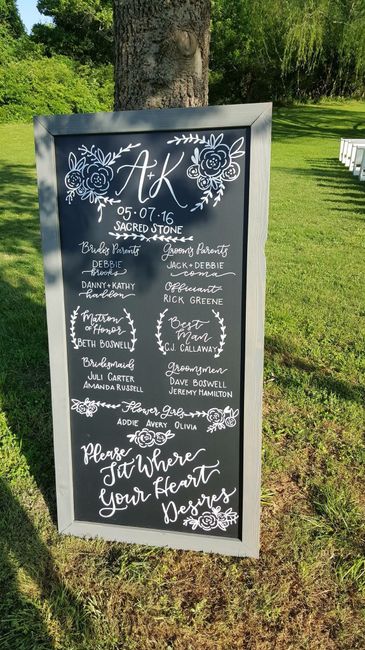 A + K
05.07.16
SACRED STONE
Bride's Parents
DEBBIE
brooks
DANNY + KATHY
haddon
Groom's Parents
JACK + DEBBIE
coma
Officiant
RICK GREENE
Matron
OF Honor
BETH BOSWELL
Best
Man
C.J. CALLAWAY
Bridesmaids
JULI CARTER
AMANDA RUSSELL
Groomsmen
DAVE BOSWELL
JEREMY HAMILTON
Flower Girls
ADDIE AVERY OLIVIA
Please
Sit Where
Your Heart
Desires